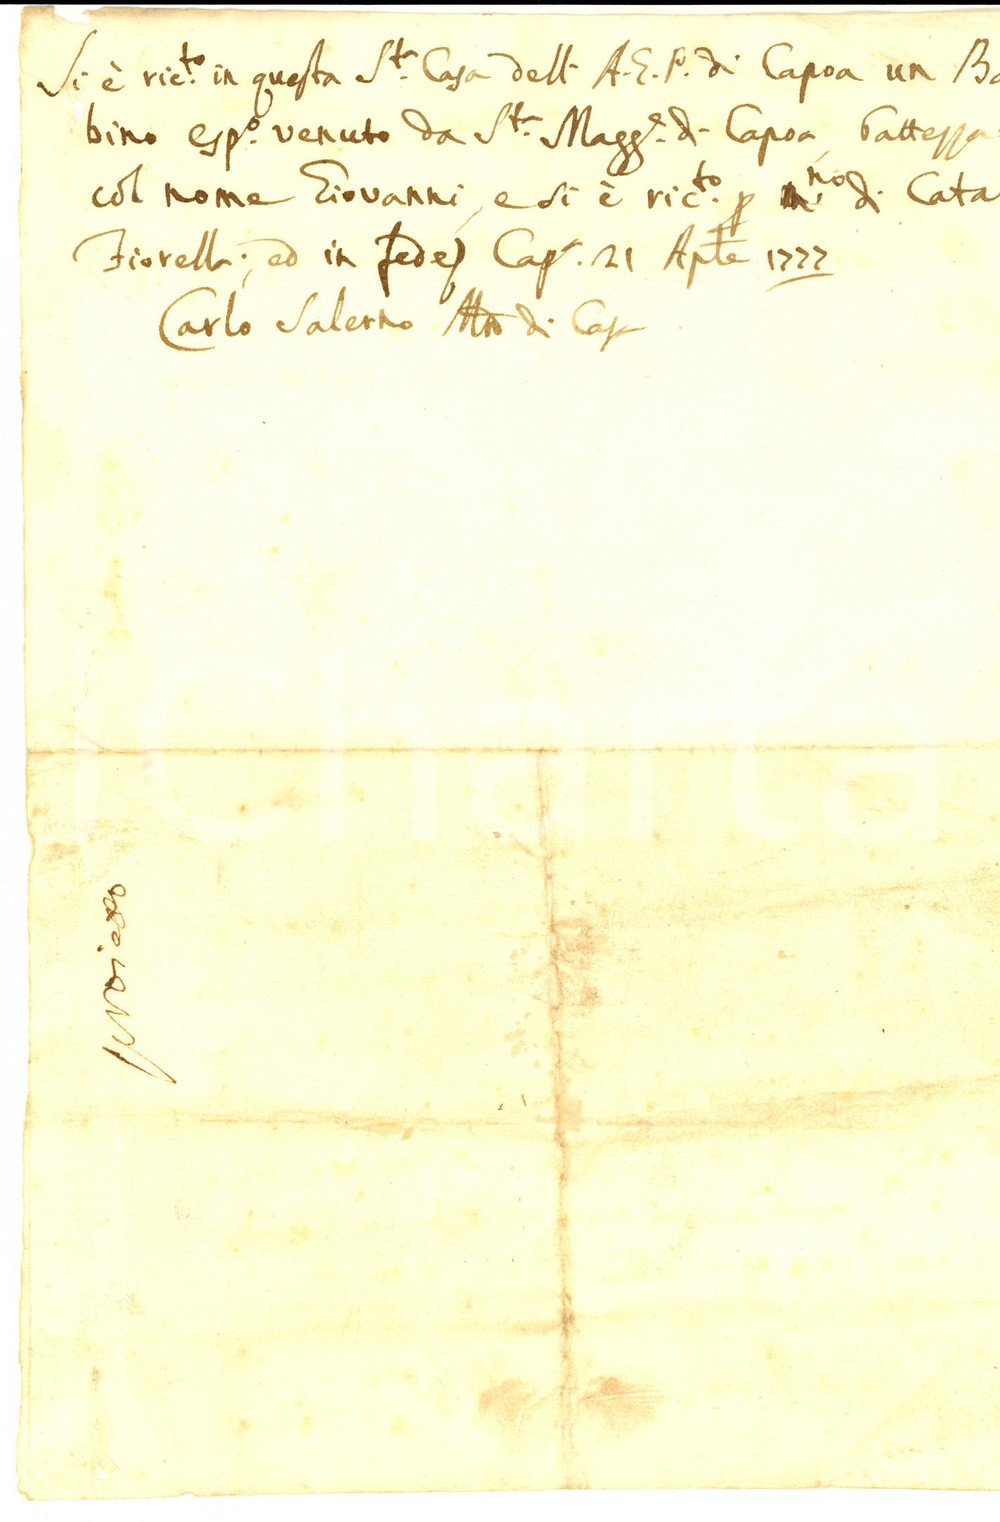 Si è ric.to in questa S.ta Casa dell' A. G. P. di Capoa un Ba
bino esp.o venuto da S.ta Magg.e di Capoa, battezza
col nome Giovanni, e si è ric.to p m.no di Cata
Fiorella; ed in fede Cap.a 21 Aple 1777
Carlo Salerno Mro di Cap
Charta